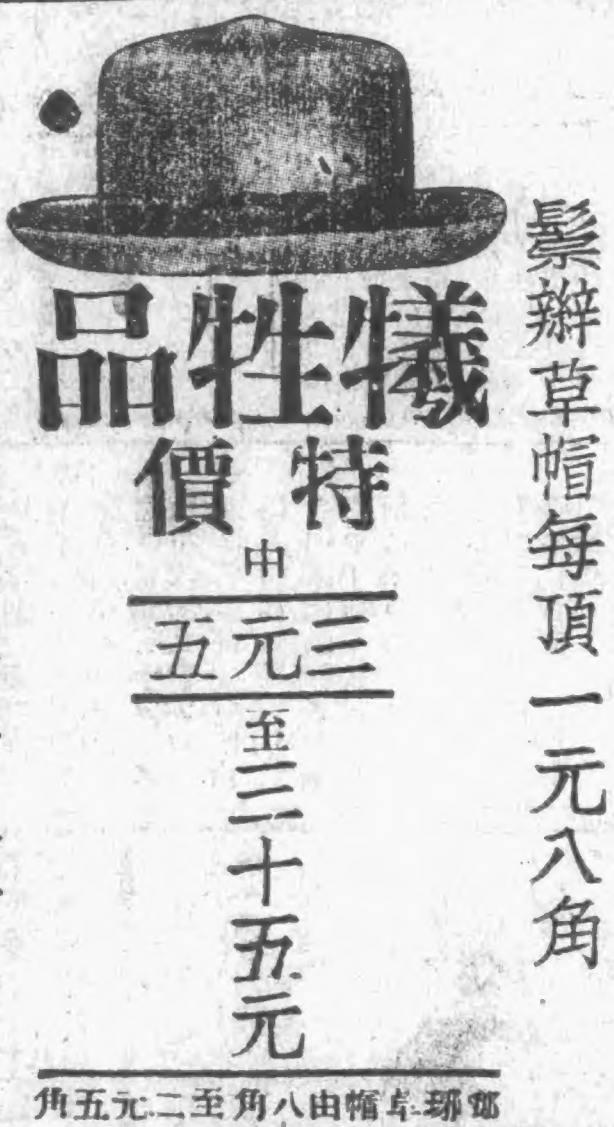 鬃辮草帽每頂一元八角
犧牲品
特價
由
三元五
至
三十五元
草帽由八角至二元五角